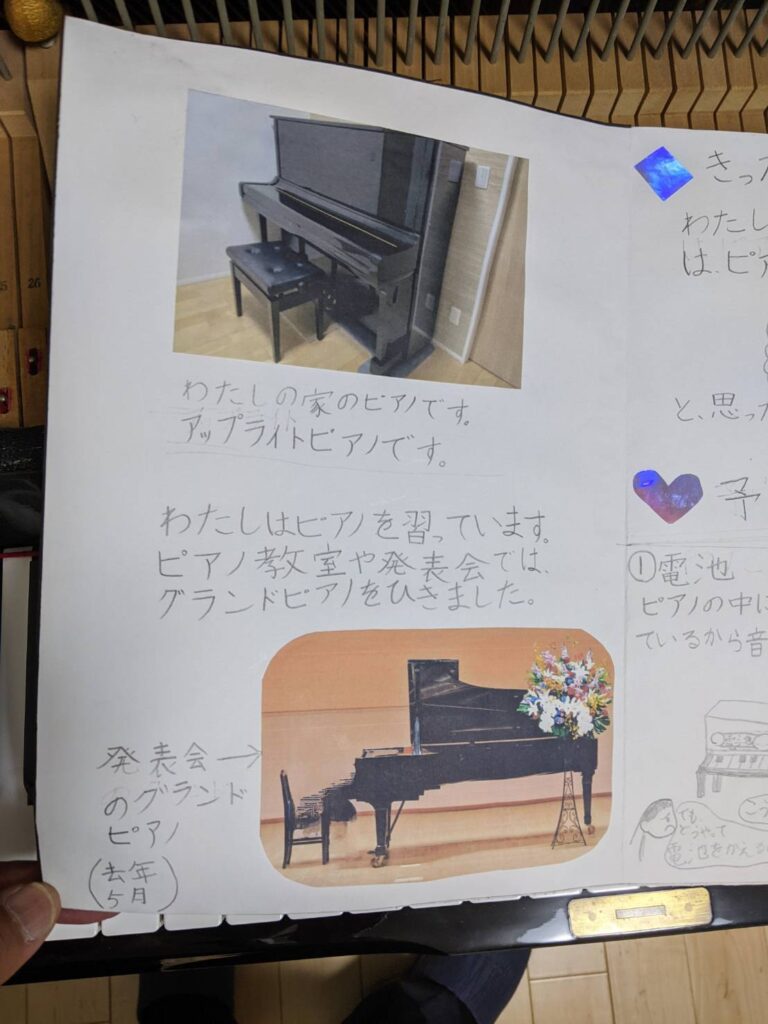 わたしの家のピアノです。
アップライトピアノです。
わたしはピアノを習っています。
ピアノ教室や発表会では、
グランドピアノをひきました。
発表会→
のグランド
ピアノ
(去年
5月)
きっか
わたし
は、ピア
と、思った
予
①電池
ピアノの中に
ているから音
電池
でも、
どうやって
電池をかえる
こう
26